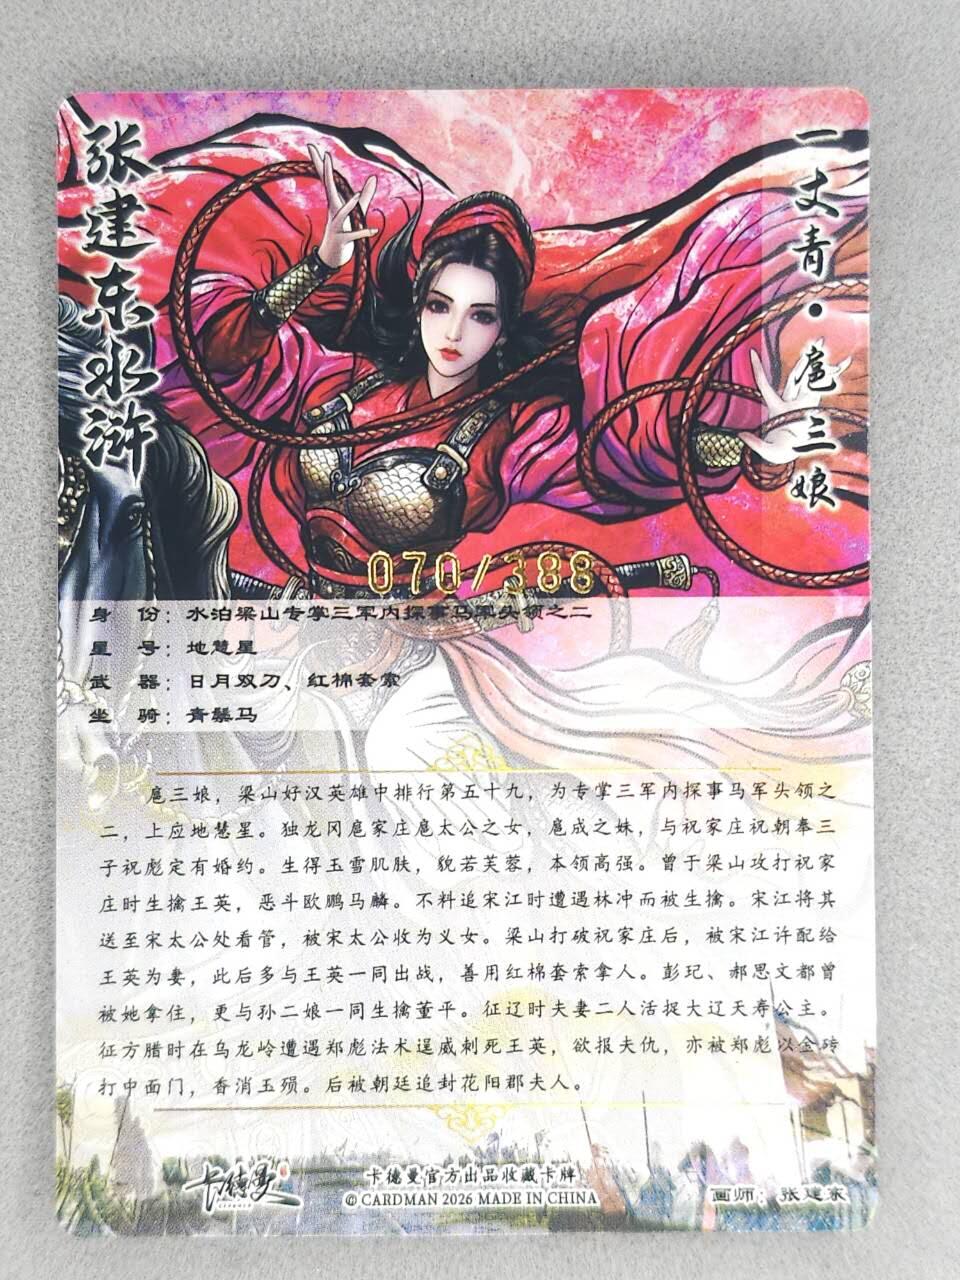 张建东水浒
一丈青·扈三娘
070/388
身 份：水泊梁山专掌三军内探事马军头领之二
星 号：地慧星
武 器：日月双刀、红棉套索
坐 骑：青鬃马
扈三娘，梁山好汉英雄中排行第五十九，为专掌三军内探事马军头领之
二，上应地慧星。独龙冈扈家庄扈太公之女，扈成之妹，与祝家庄祝朝奉三
子祝彪定有婚约。生得玉雪肌肤，貌若芙蓉，本领高强。曾于梁山攻打祝家
庄时生擒王英，恶斗欧鹏马麟。不料追宋江时遭遇林冲而被生擒。宋江将其
送至宋太公处看管，被宋太公收为义女。梁山打破祝家庄后，被宋江许配给
王英为妻，此后多与王英一同出战，善用红棉套索拿人。彭玘、郝思文都曾
被她拿住，更与孙二娘一同生擒董平。征辽时夫妻二人活捉大辽天寿公主。
征方腊时在乌龙岭遭遇郑彪法术逞威刺死王英，欲报夫仇，亦被郑彪以金砖
打中面门，香消玉殒。后被朝廷追封花阳郡夫人。
卡德曼
卡德曼官方出品收藏卡牌
© CARDMAN 2026 MADE IN CHINA
画师：张建东